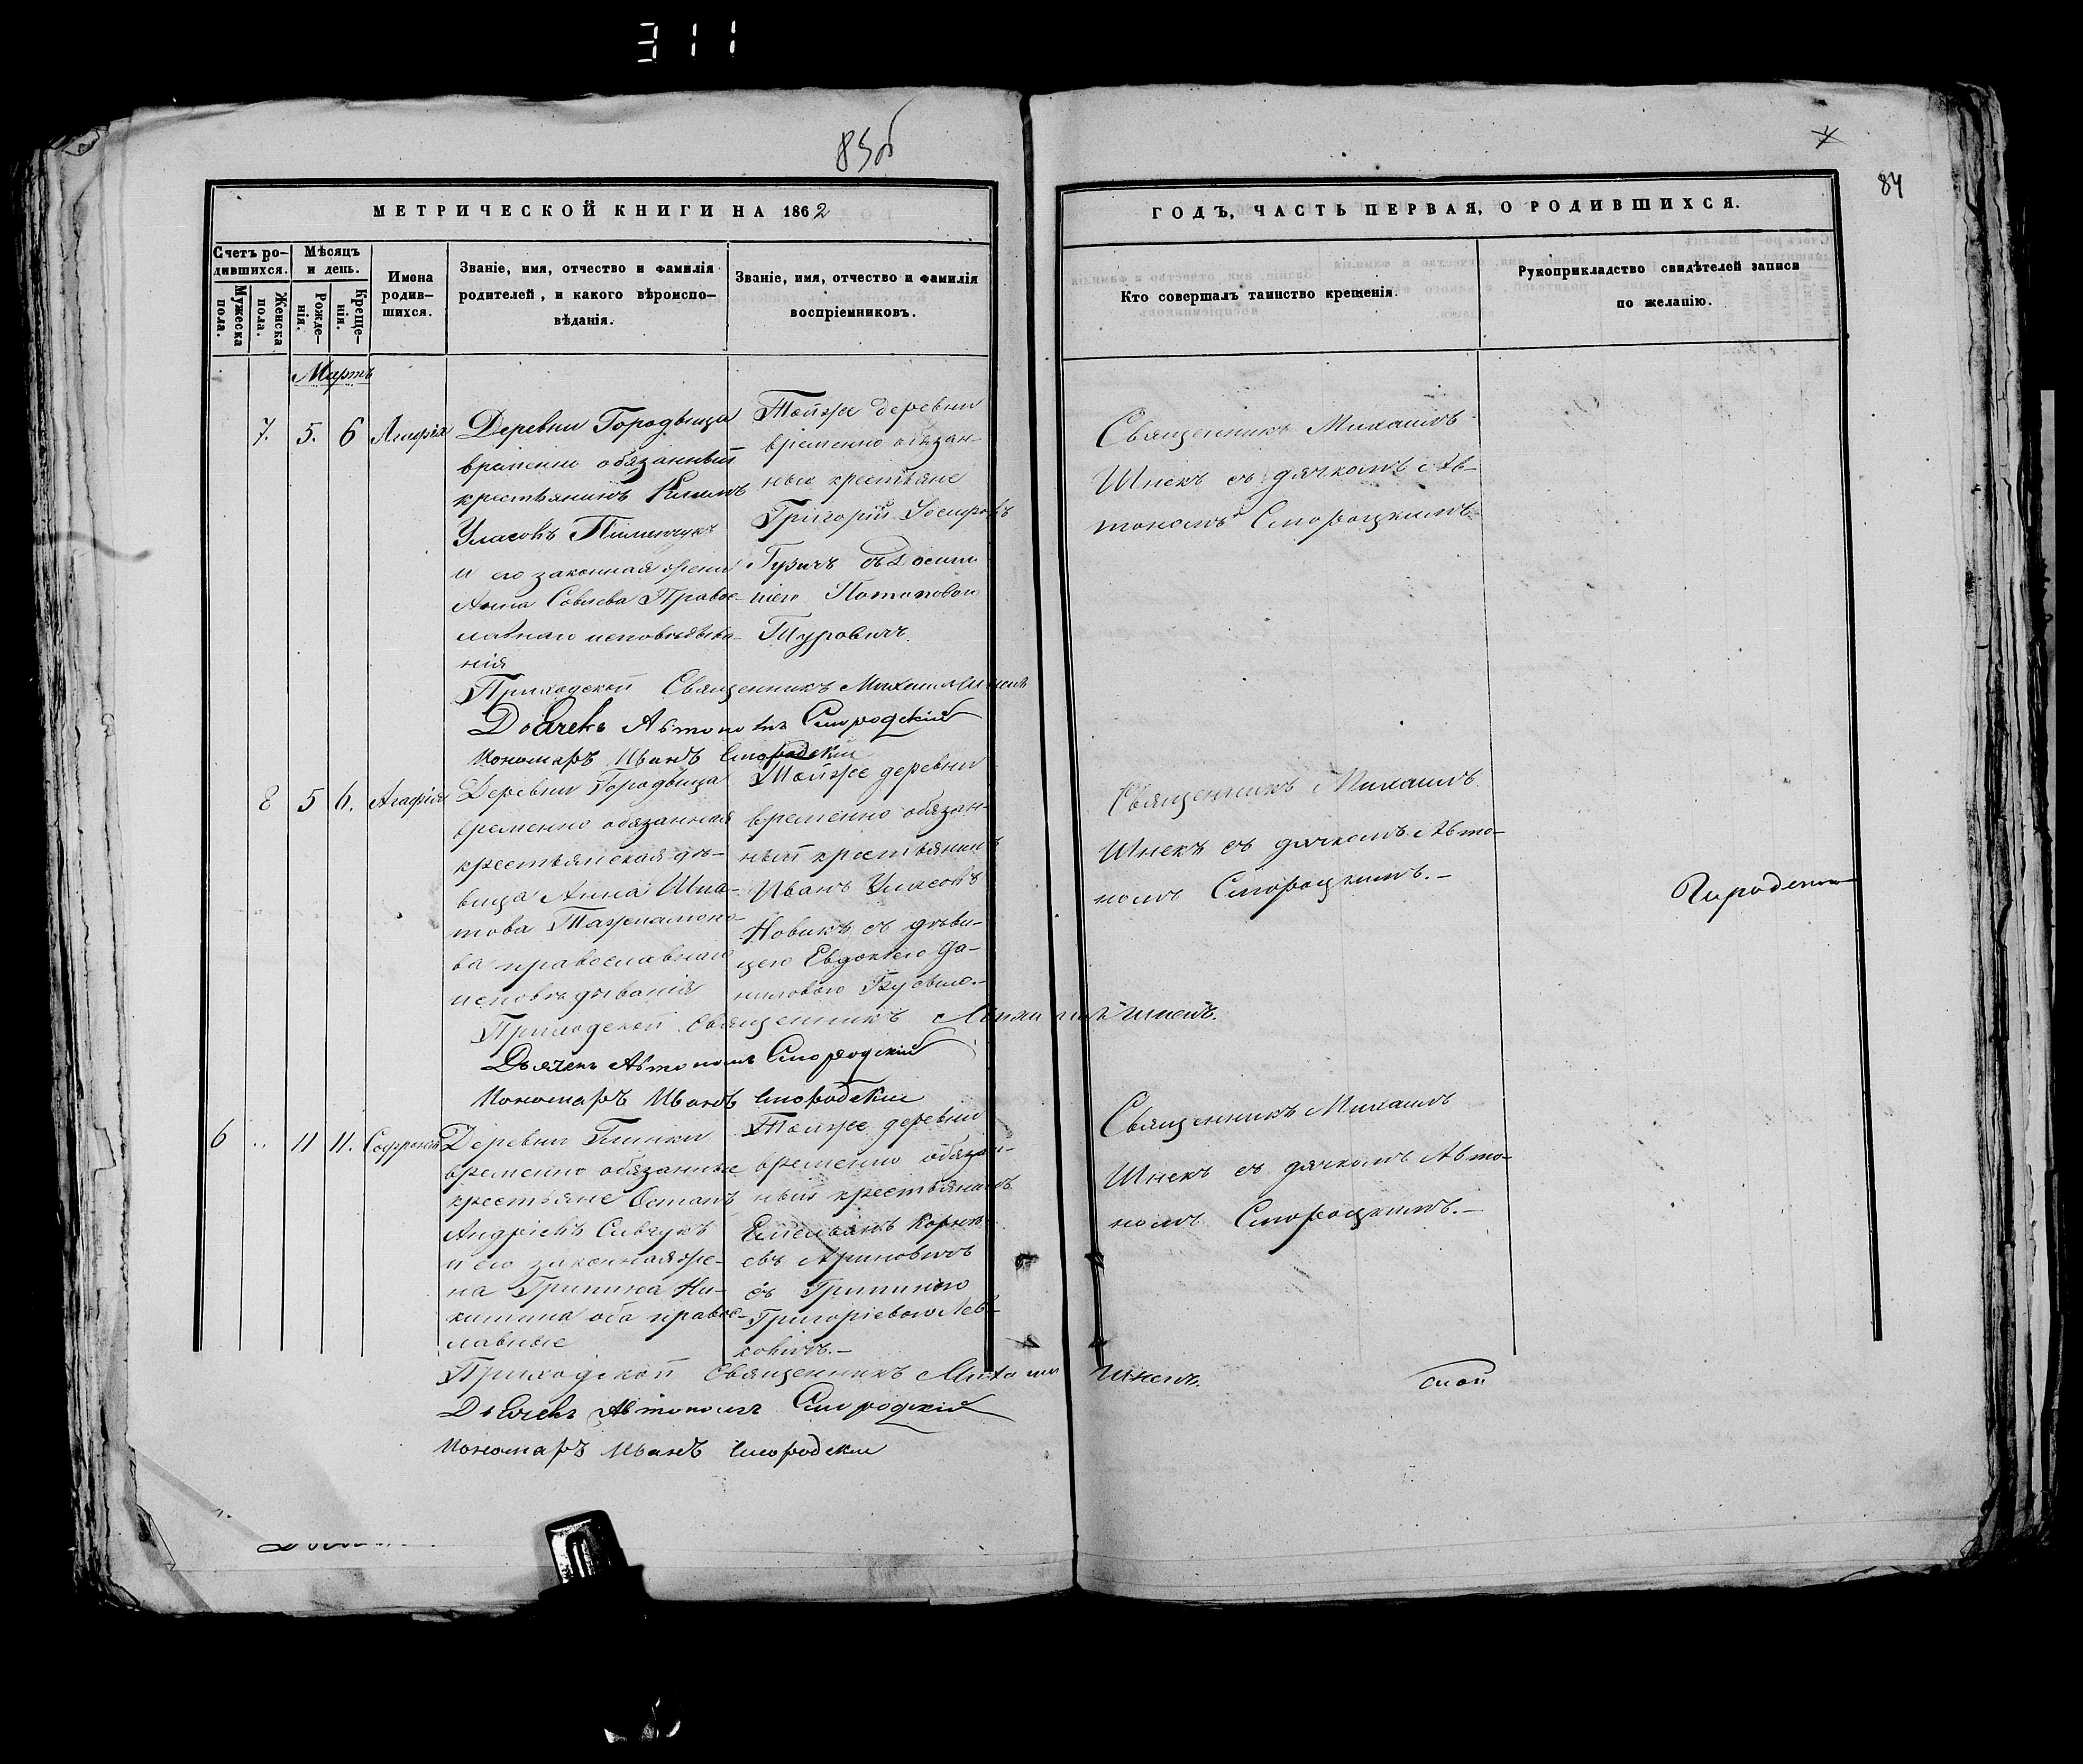 311
83об
84
МЕТРИЧЕСКОЙ КНИГИ НА 1862
ГОДЪ, ЧАСТЬ ПЕРВАЯ, О РОДИВШИХСЯ.
Счетъ ро-
дившихся.
Мужеска
пола.
Женска
пола.
Мѣсяцъ
и день.
Рожде-
нія.
Креще-
нія.
Имена
родив-
шихся.
Званіе, имя, отчество и фамилія
родителей, и какого вѣроиспо-
вѣданія.
Званіе, имя, отчество и фамилія
воспріемниковъ.
Кто совершалъ таинство крещенія.
Рукоприкладство свидѣтелей записи
по желанію.
Мартъ
7. 5. 6 Агафія
Деревни Городьища
временно обязанный
крестьянинъ
Уласовъ
и его законная жена
Анна Савиева Правос-
лавнаго исповѣдыва-
нія
Тойже деревни
временно обязан-
ные крестьяне
Григорій
Гузичъ съ
Потаповою
Туровичъ
Священникъ Михаилъ
Шнекъ съ дячкомъ Ав-
тономъ Смородскимъ
Приходской Священникъ Михаилъ Шнекъ
Дьячекъ Автономъ Смородскій
Пономаръ Иванъ Смородскій
8 5 6. Агафія
Деревни Городьища
временно обязанная
крестьянская дѣ-
вица Анна Игна-
това
ва православнаго
исповѣдыванія
Тойже деревни
временно обязан-
ный крестьянинъ
Иванъ Уласовъ
Новикъ съ дѣви-
цею Евдокіею Да-
ниловою
Священникъ Михаилъ
Шнекъ съ дячкомъ Авто-
номъ Смородскимъ.-
Приходской Священникъ Михаилъ Шнекъ.
Дьячекъ Автономъ Смородскій
Пономаръ Иванъ Смородскій
6 .. 11 11. Софроній
Деревни Глинки
временно обязанные
крестьяне Остапъ
Андріевъ Савчукъ
и его законная же-
на Грипина Ни-
китина оба правос-
лавные
Тойже деревни
временно обязан-
ный крестьянинъ
Емельянъ Корнѣ-
евъ Ариновичъ
съ Грипиною
Григоріевою Лев-
ковичъ.-
Священникъ Михаилъ
Шнекъ съ дячкомъ Авто-
номъ Смородскимъ.-
Приходской Священникъ Михаилъ Шнекъ.
Дьячекъ Автономъ Смородскій
Пономаръ Иванъ Смородскій